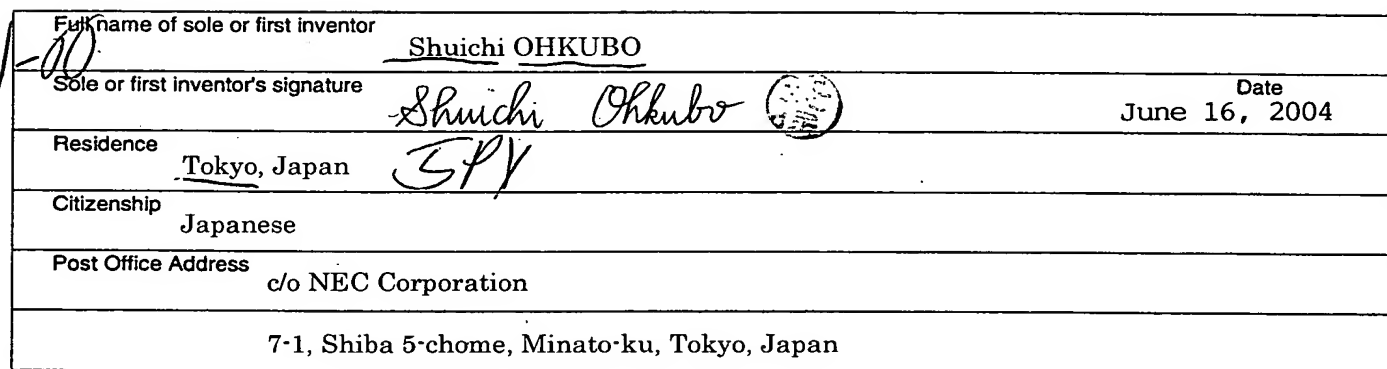 Full name of sole or first inventor
Shuichi OHKUBO
1-00
Sole or first inventor's signature
Shuichi Ohkubo
Date
June 16, 2004
Residence
Tokyo, Japan JPY
Citizenship
Japanese
Post Office Address
c/o NEC Corporation
7-1, Shiba 5-chome, Minato-ku, Tokyo, Japan